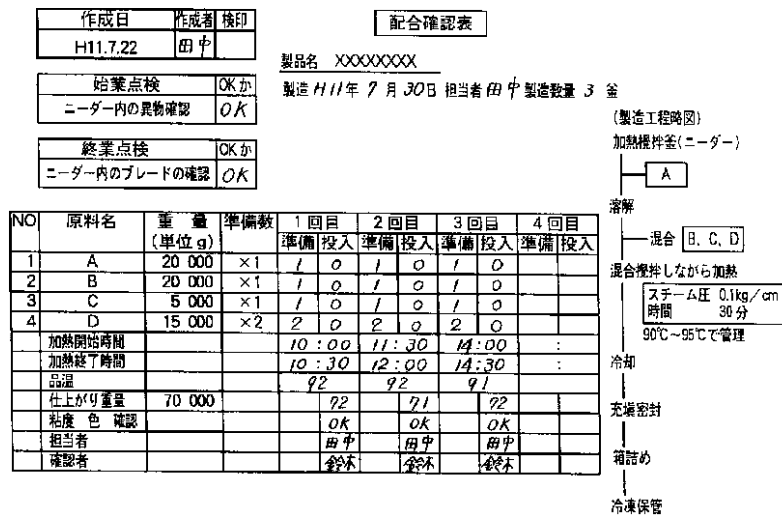 作成日 作成者 検印
H11.7.22 田中
配合確認表
製品名 XXXXXXXX
製造 H11年 7月 30日 担当者 田中 製造数量 3 釜
始業点検 OKか
ニーダー内の異物確認 OK
終業点検 OKか
ニーダー内のブレードの確認 OK
NO 原料名 重 量 準備数 1回目 2回目 3回目 4回目
(単位g) 準備 投入 準備 投入 準備 投入 準備 投入
1 A 20 000 ×1 1 0 1 0 1 0
2 B 20 000 ×1 1 0 1 0 1 0
3 C 5 000 ×1 1 0 1 0 1 0
4 D 15 000 ×2 2 0 2 0 2 0
加熱開始時間 10:00 11:30 14:00 :
加熱終了時間 10:30 12:00 14:30 :
品温 92 92 91
仕上がり重量 70 000 72 71 72
粘度 色 確認 OK OK OK
担当者 田中 田中 田中
確認者 鈴木 鈴木 鈴木
(製造工程略図)
加熱攪拌釜(ニーダー)
A
溶解
混合 B, C, D
混合攪拌しながら加熱
スチーム圧 0.1kg/cm
時間 30分
90℃~95℃で管理
冷却
充塡密封
箱詰め
冷凍保管